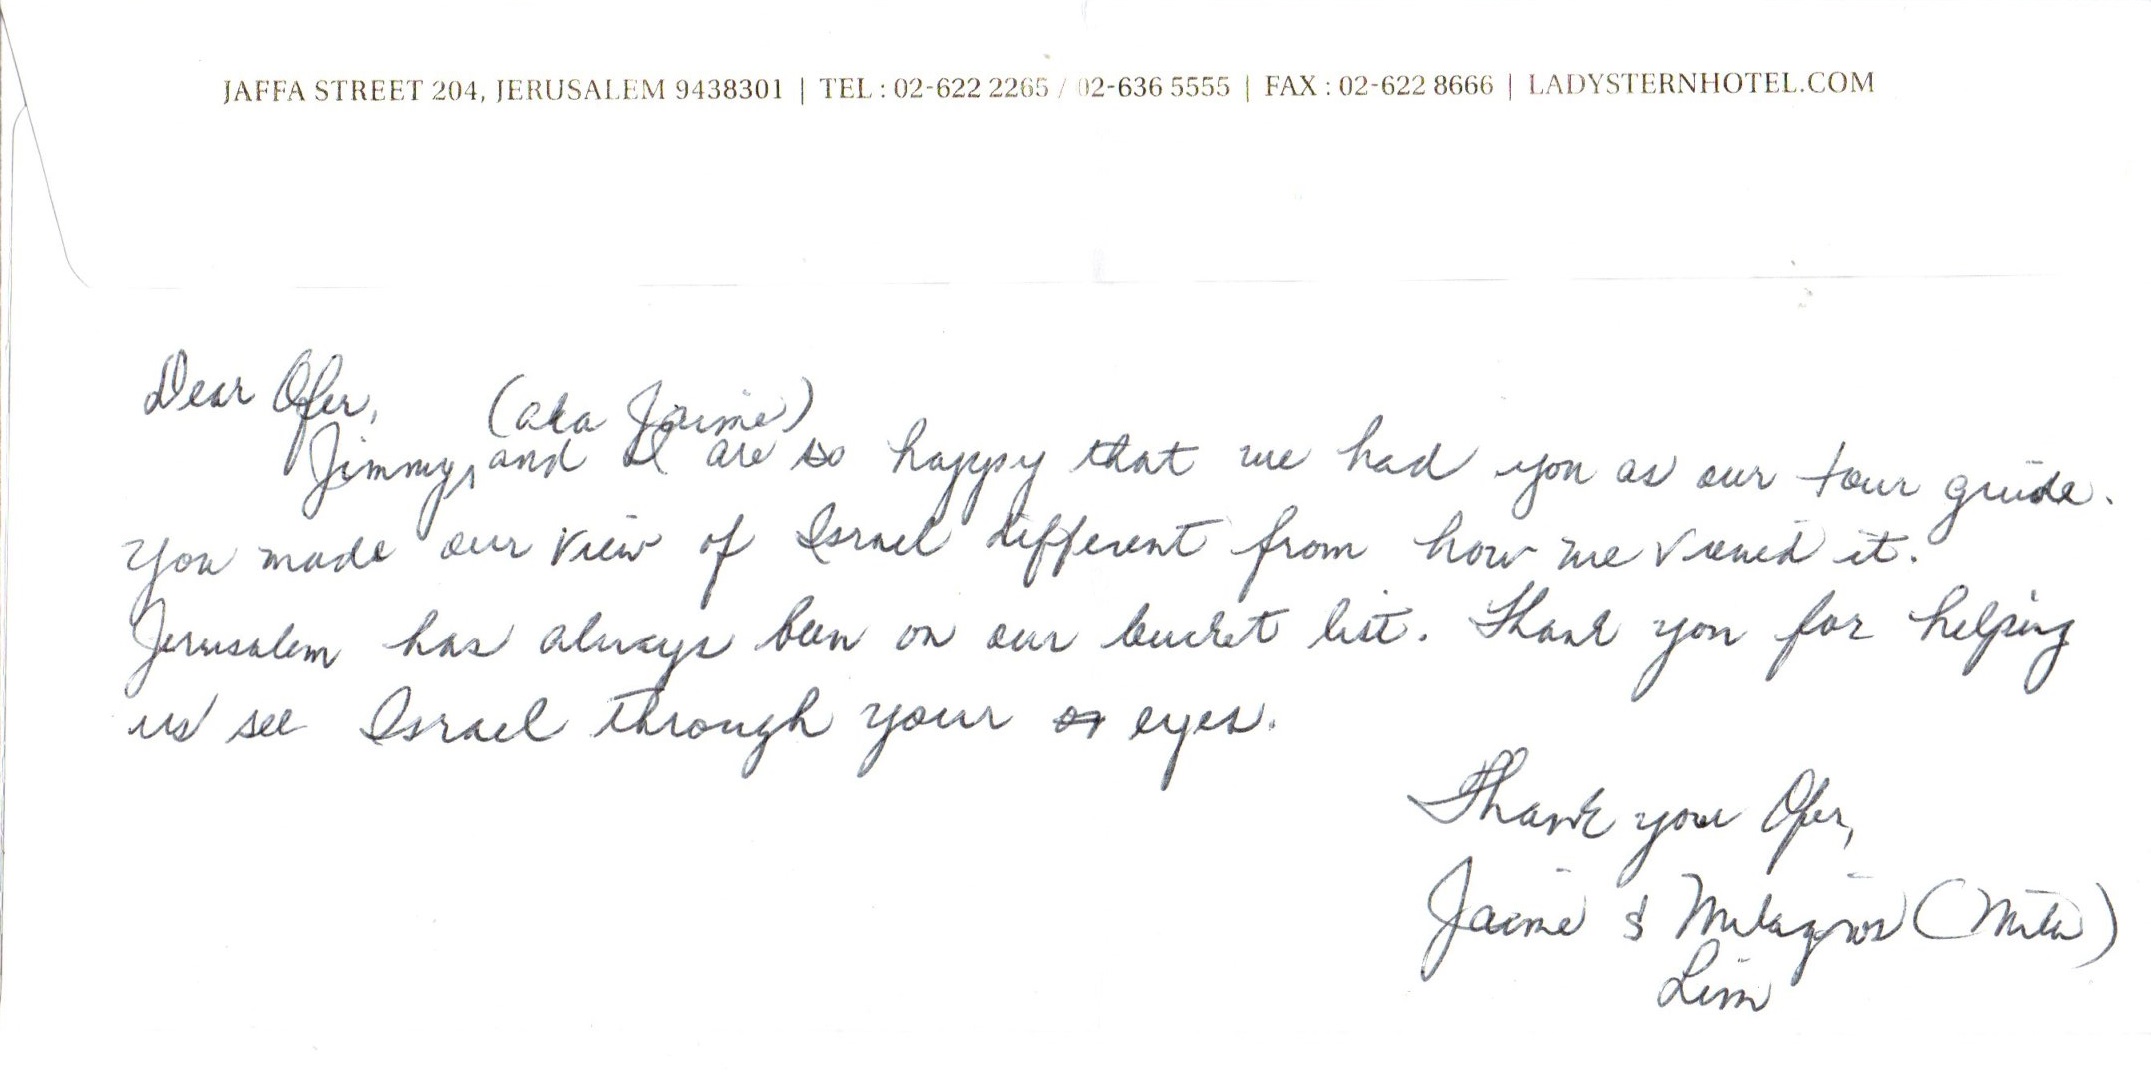 JAFFA STREET 204, JERUSALEM 9438301 | TEL : 02-622 2265 / 02-636 5555 | FAX : 02-622 8666 | LADYSTERNHOTEL.COM
Dear Ofer,
(aka Jaime)
Jimmy, and I are so happy that we had you as our tour guide.
You made our view of Israel different from how we viewed it.
Jerusalem has always been on our bucket list. Thank you for helping
us see Israel through your eyes.
Thank you Ofer,
Jaime & Milagros (Mila)
Lim